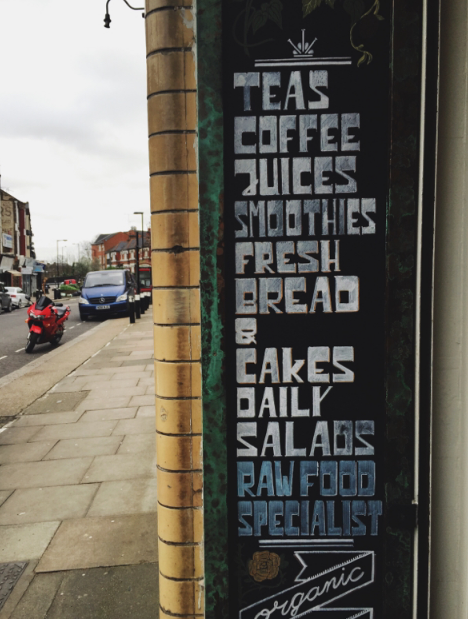 TEAS
COFFEE
JUICES
SMOOTHIES
FRESH
BREAD
&
CAKES
DAILY
SALADS
RAW FOOD
SPECIALIST
organic